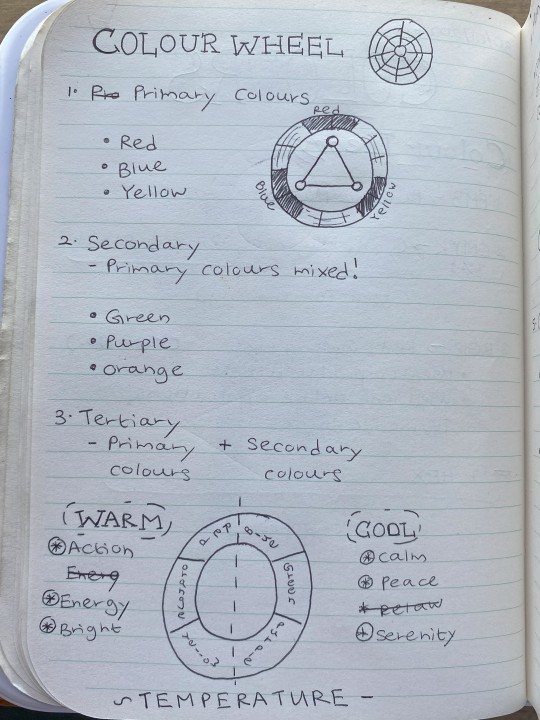 COLOUR WHEEL
1. Pro Primary Colours
Red
• Red
• Blue
• Yellow
Blue
Yellow
2. Secondary
- Primary colours mixed!
• Green
• Purple
• orange
3. Tertiary
- Primary + Secondary
colours colours
WARM
* Action
Energ
* Energy
* Bright
Green
COOL
* calm
* Peace
* Serenity
~ TEMPERATURE -